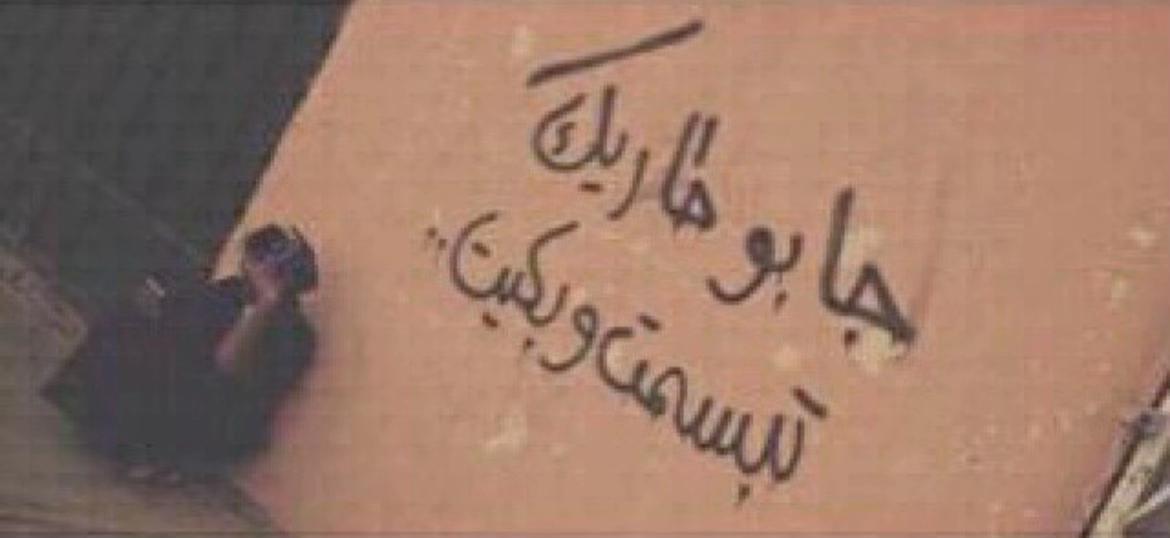 جابو طاريك
تبسمت وبكيت..